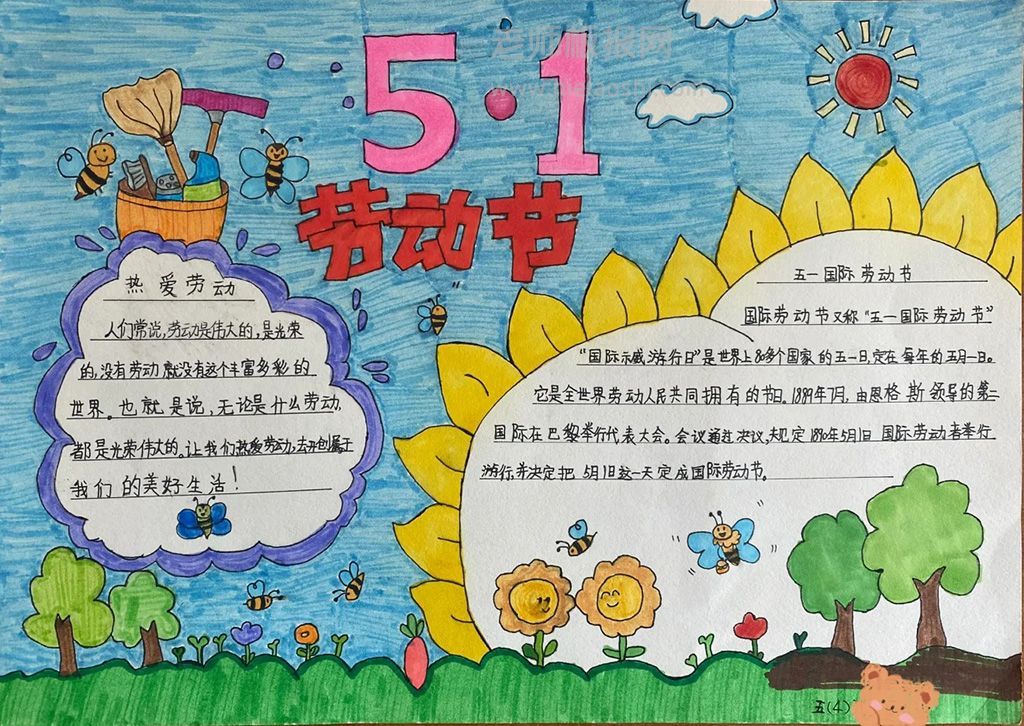 5·1
劳动节
热爱劳动
人们常说,劳动是伟大的,是光荣
的,没有劳动就没有这个丰富多彩的
世界。也就是说,无论是什么劳动,
都是光荣伟大的。让我们热爱劳动,去开创属于
我们的美好生活!
五一国际劳动节
国际劳动节又称“五一国际劳动节”
“国际示威游行日”是世界上80多个国家的五一日,定在每年的五月一日。
它是全世界劳动人民共同拥有的节日。1889年7月,由恩格斯领导的第二
国际在巴黎举行代表大会。会议通过决议,规定1890年5月1日国际劳动者举行
游行,并决定把5月1日这一天定成国际劳动节。
五(4)